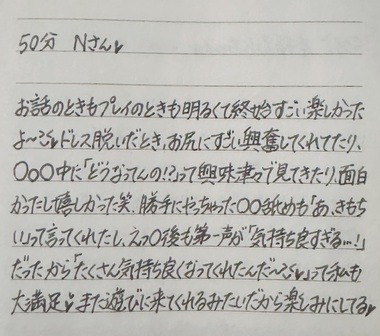 50分 Nさん♥
お話のときもプレイのときも明るくて終始すごい楽しかった
よ〜♡ドレス脱いだとき、お尻にすごい興奮してくれてたり、
○○○中に「どうなってんの!?」って興味津々で見てきたり、面白
かったし嬉しかった笑、勝手にやっちゃった○○舐めも「あ、きもち
い」って言ってくれたし、えっ○後も第一声が「気持ち良すぎる…!」
だったから「たくさん気持ち良くなってくれたんだ〜♡」って私も
大満足♥また遊びに来てくれるみたいだから楽しみにしてる♥